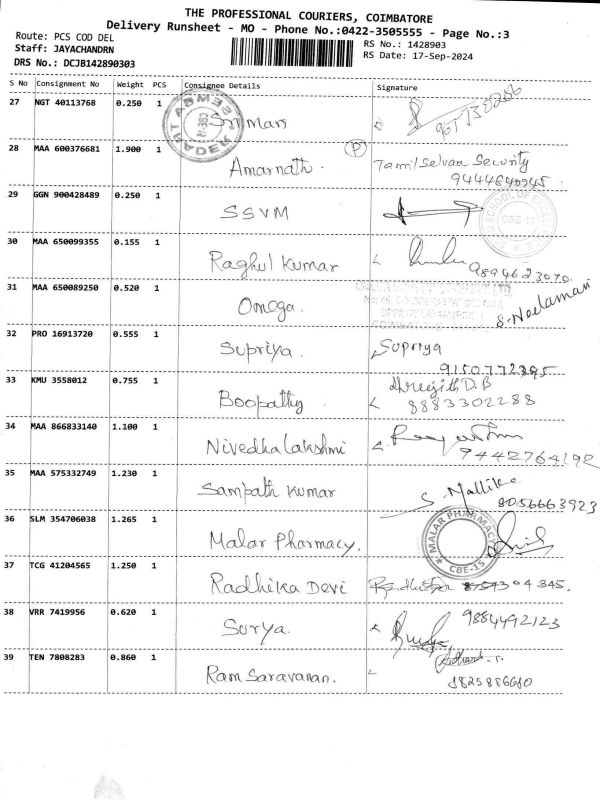 THE PROFESSIONAL COURIERS, COIMBATORE
Delivery Runsheet - MO - Phone No.:0422-3505555 - Page No.:3
Route: PCS COD DEL
Staff: JAYACHANDRN
DRS No.: DCJB142890303
RS No.: 1428903
RS Date: 17-Sep-2024
S No Consignment No Weight PCS Consignee Details Signature
27 NGT 40113768 0.250 1 Sriman
CBE-15
28 MAA 600376681 1.900 1 Amarnath. P Tamil Selvan Security
9444640945
29 GGN 900428489 0.250 1 SSVM
SCHOOL OF CBE-15
30 MAA 650099355 0.155 1 Raghul Kumar
9894623070.
31 MAA 650089250 0.520 1 Omega. S. Neelaman
32 PRO 16913720 0.555 1 Supriya. Supriya
9150772395
33 KMU 3558012 0.755 1 Boopathy D.B
8883302288
34 MAA 866833140 1.100 1 Nivedha Lakshmi
9442764192
35 MAA 575332749 1.230 1 Sampath Kumar S. Mallika
8056663923
36 SLM 354706038 1.265 1 Malar Pharmacy.
MALAR PHARMACY CBE-15
37 TCG 41204565 1.250 1 Radhika Devi 304345.
38 VRR 7419956 0.620 1 Surya. 9884492123
39 TEN 7808283 0.860 1 Ram Saravanan.
8825886680